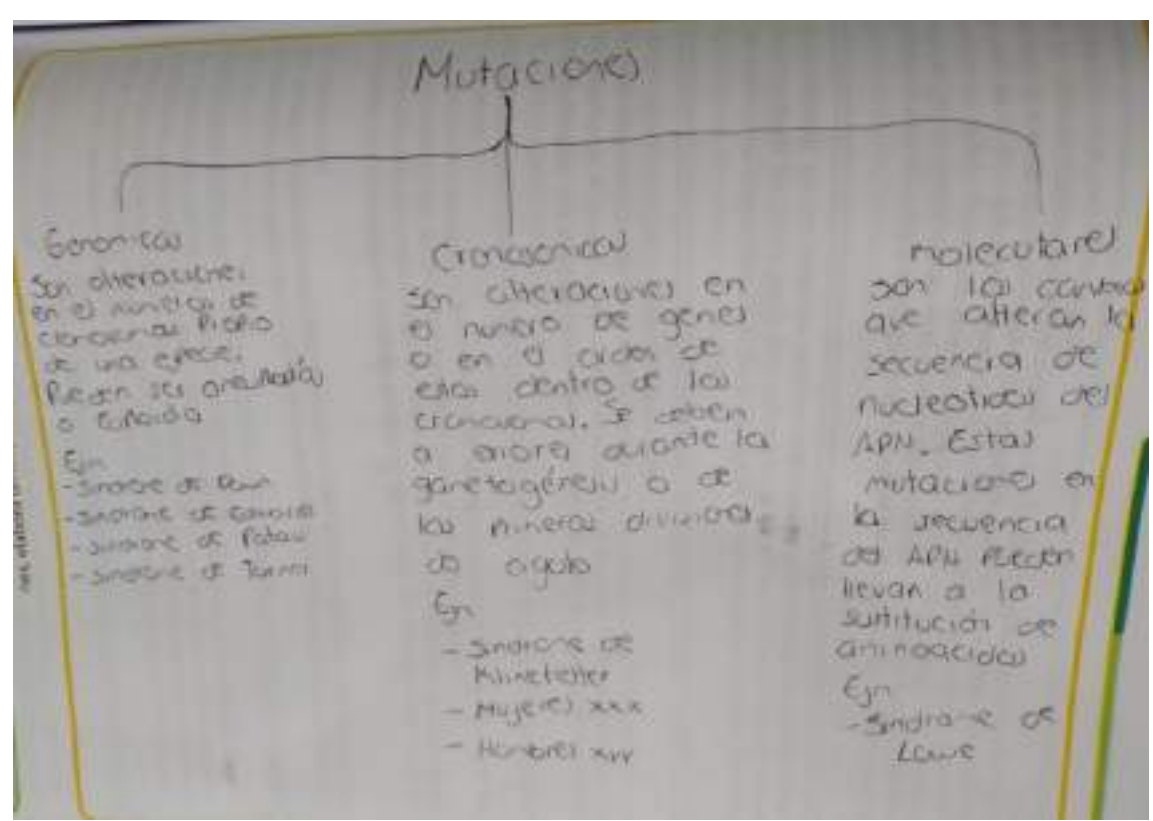 Mutaciones
Genomicas
Son alteraciones
en el numero de
cromosomas Propio
de una especie.
Pueden ser aneuploidía
o Euploidia
Ejm
- Sindrome de Down
- Sindrome de
- Sindrome de Patau
- Sindrome de
Cromosomicas
son alteraciones en
el numero de genes
o en el orden de
estos dentro de los
cromosomas. Se deben
a errores durante la
gametogénesis o de
las primeras divisiones
Ejm
- Sindrome de
Klinefelter
- Mujeres xxx
- Hombres xyy
moleculares
son los cambios
que alteran la
secuencia de
nucleotidos del
ADN. Estas
mutaciones en
la secuencia
del ADN Pueden
llevan a la
sustitución de
aminoacidos
Ejm
- Sindrome de
Lowe